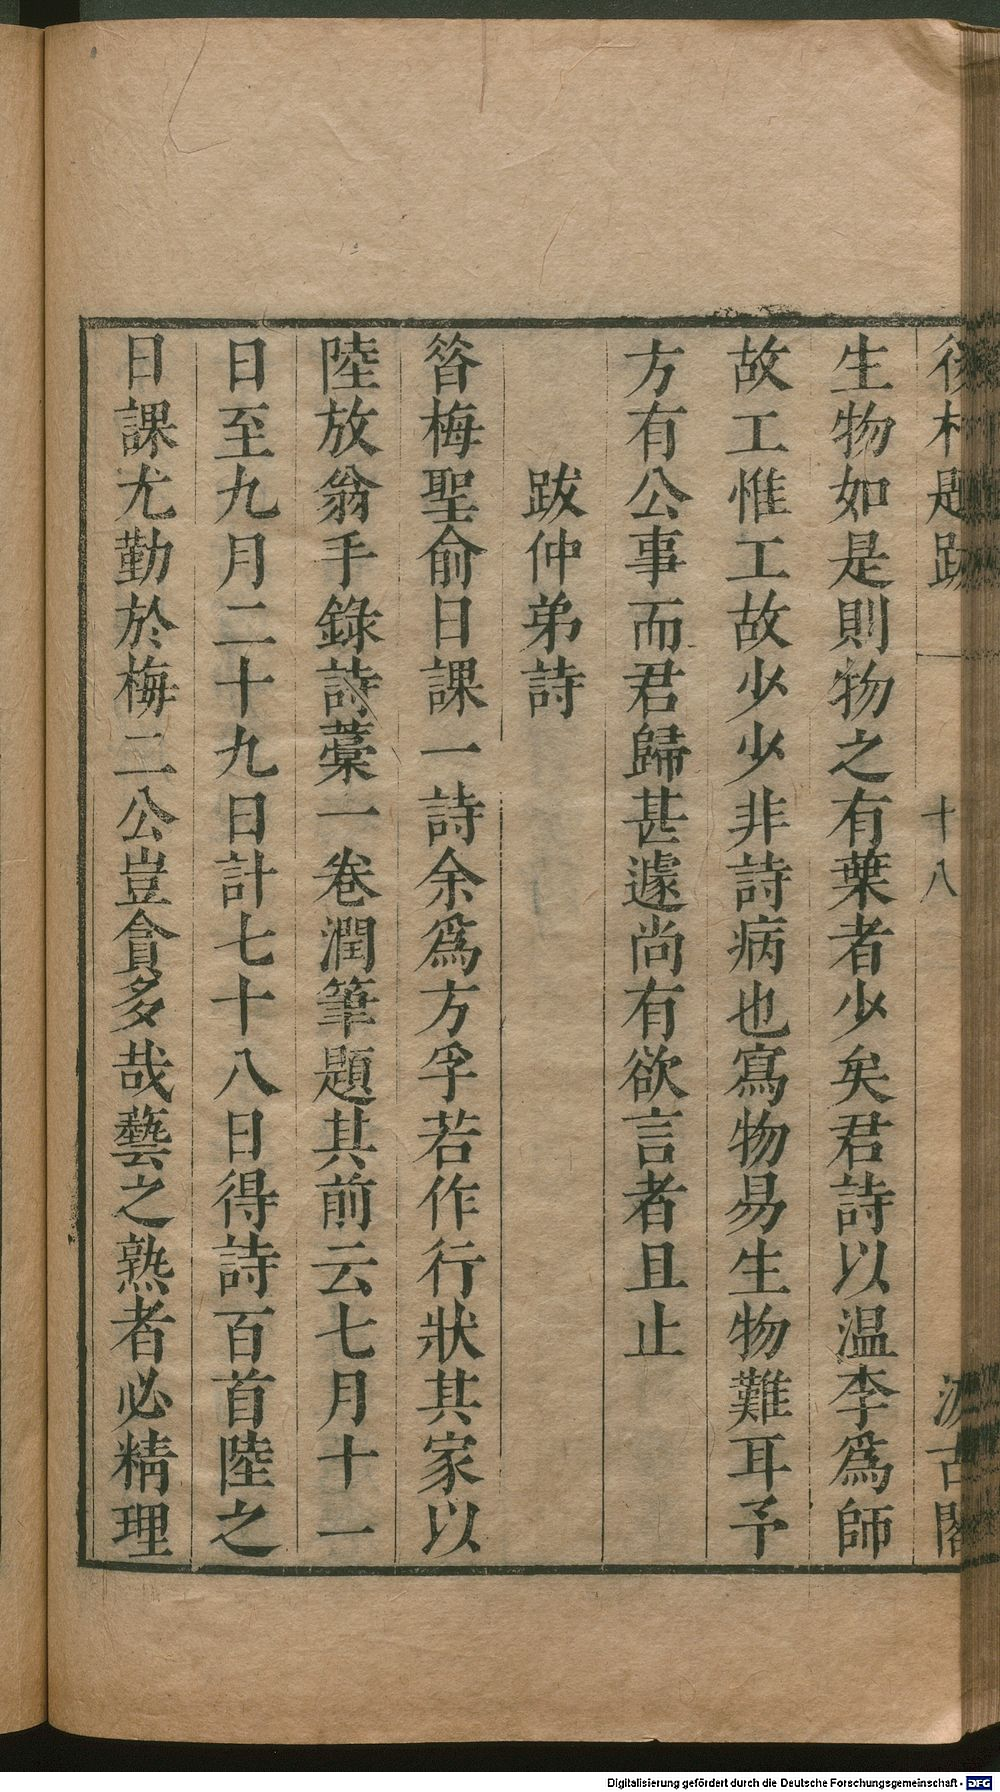 後村題跋 十八 汲古閣
生物如是則物之有葉者少矣君詩以温李爲師
故工惟工故少少非詩病也寫物易生物難耳予
方有公事而君歸甚遽尚有欲言者且止
跋仲弟詩
昝梅聖俞日課一詩余爲方孚若作行狀其家以
陸放翁手錄詩藁一卷潤筆題其前云七月十一
日至九月二十九日計七十八日得詩百首陸之
日課尤勤於梅二公豈貪多哉藝之熟者必精理
Digitalisierung gefördert durch die Deutsche Forschungsgemeinschaft - DFG